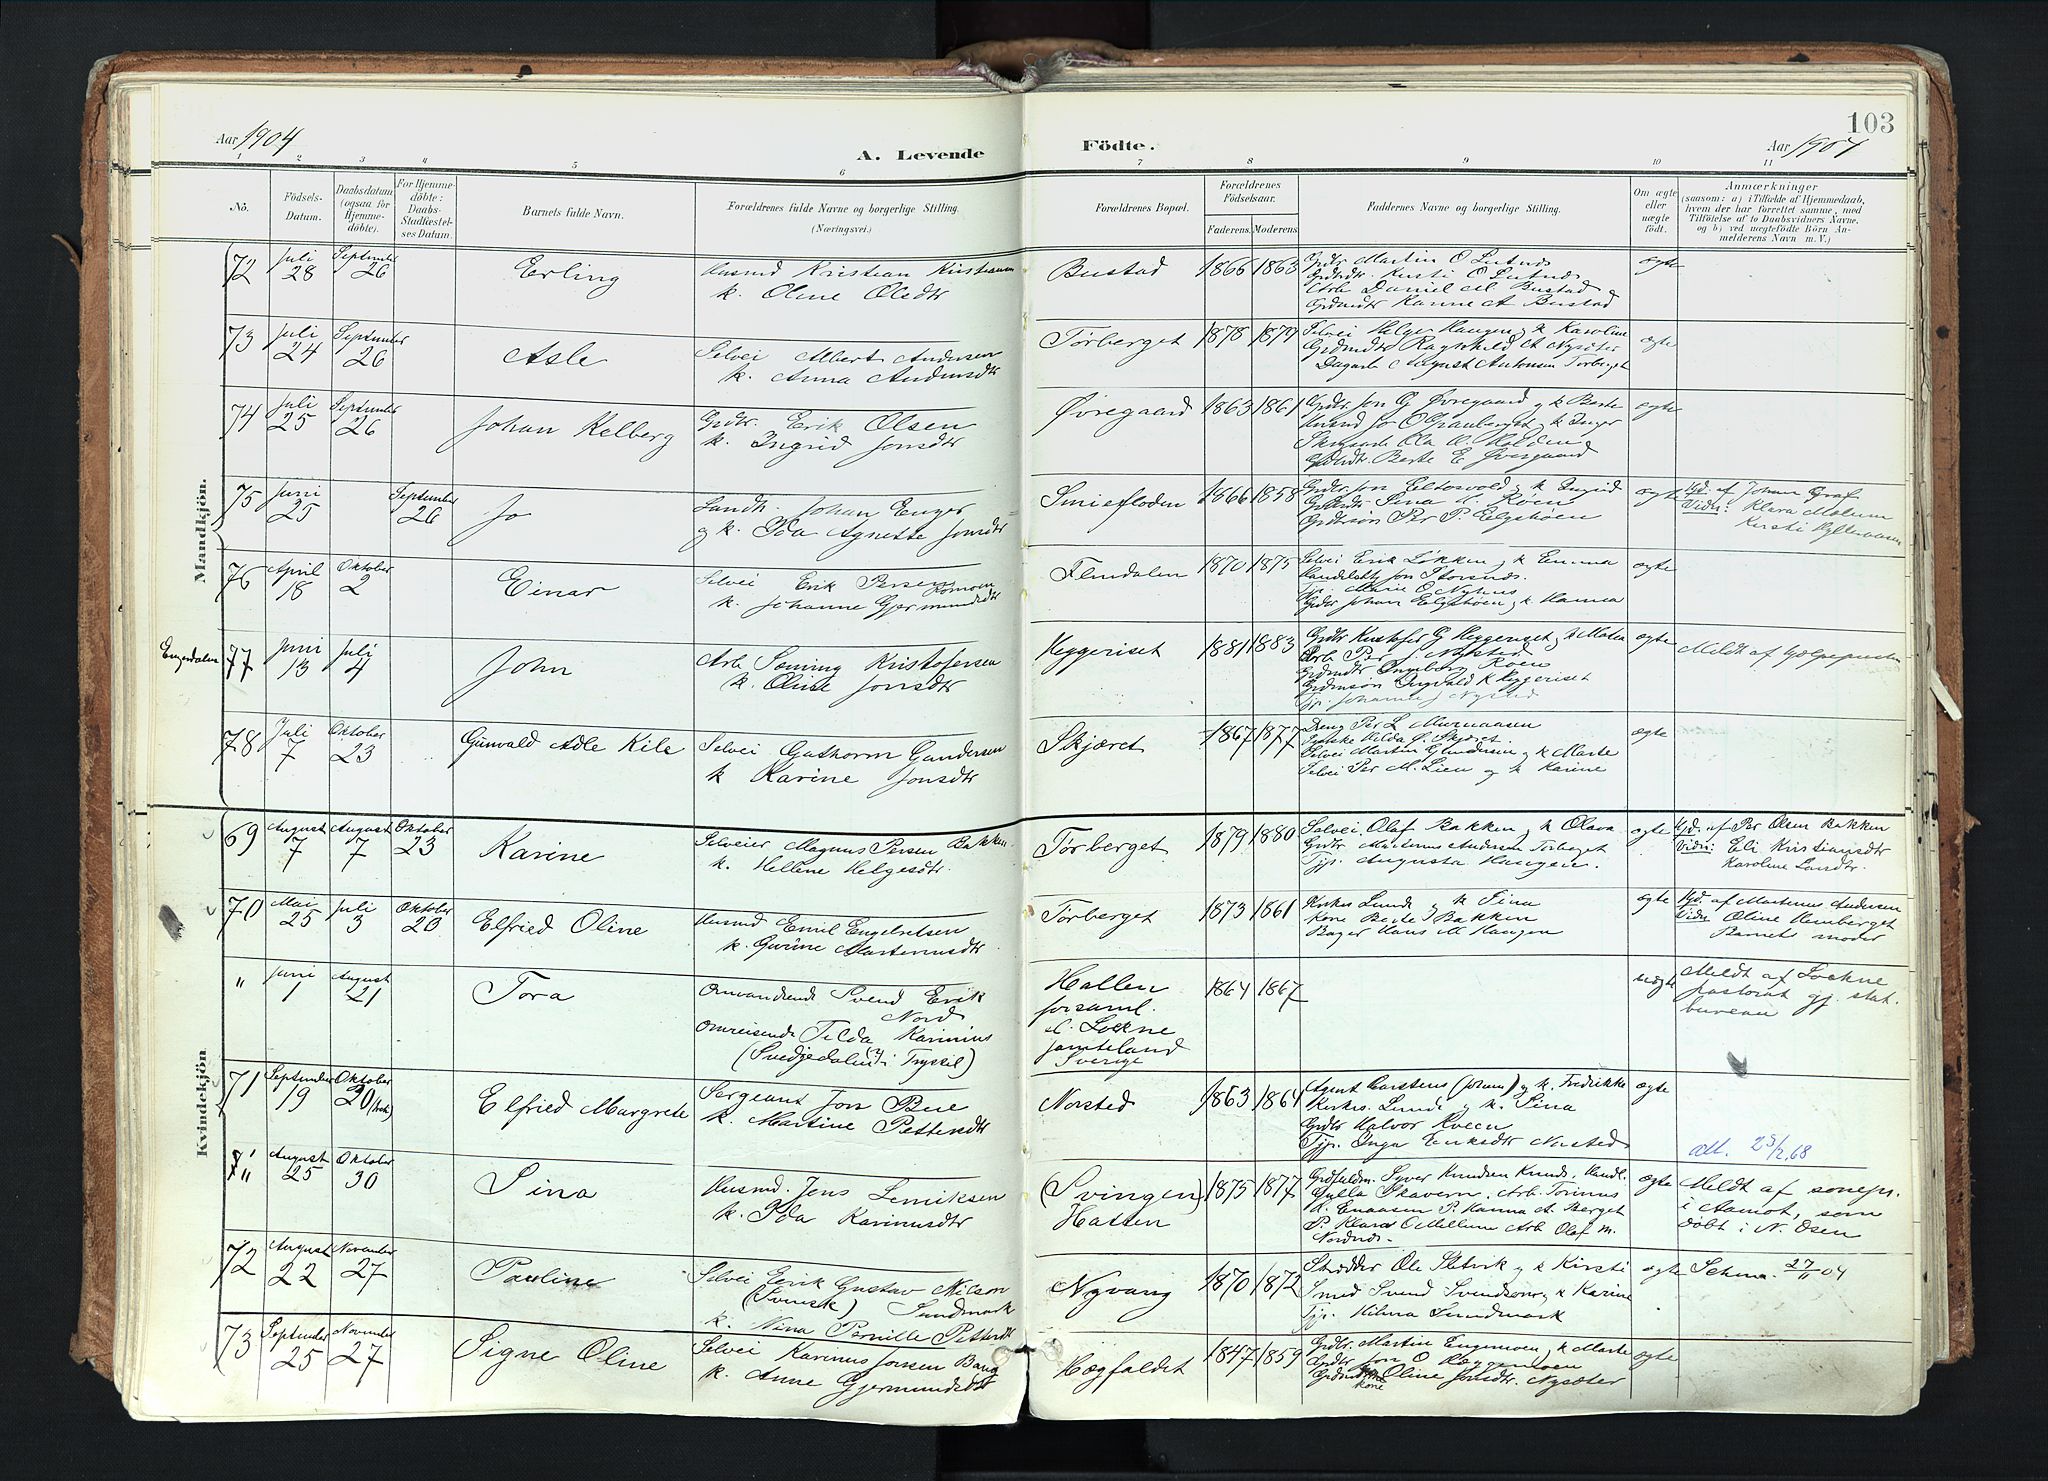 Aar 1904
A. Levende
Födte.
Aar 1904
103
1 2 3 4 5 6 7 8 9 10 11
No.
Födsels-
Datum.
Daabsdatum
(ogsaa for
Hjemme-
döbte).
For Hjemme-
döbte:
Daabs-
Stadfæstel-
ses Datum.
Barnets fulde Navn.
Forældrenes fulde Navne og borgerlige Stilling.
(Næringsvei.)
Forældrenes Bopæl.
Forældrenes
Födselsaar.
Faderens. Moderens
Faddernes Navne og borgerlige Stilling.
Om ægte
eller
uægte
födt.
Anmærkninger
(saasom: a) i Tilfælde af Hjemmedaab,
hvem der har forrettet samme, med
Tilföielse af to Daabsvidners Navne.
og b) ved uægtefödte Börn An-
melderens Navn m. V.)
Mandkjön.
72 Juli 28 September 26 Erling
Husmd Kristian Kristiansen
k. Oline Olsdtr
Bustad 1866 1863
Grdbr Martin O Lutnes
Grdmdtr. Kersti O Lutnes
Arb Daniel M Bustad
Grdmdtr Karine A Bustad
ægte
73 Juli 24 September 26 Asle
Selvei Albert Andersen
k. Anna Andersdtr
Törberget 1878 1879
Selvei Helge Haugen og k Karoline
Grdmdtr Ragnhild A Nysæter
Dagarb August Antonsen Törberget
ægte
74 Juli 25 September 26 Johan Kelberg
Grdbr. Erik Olsen
k. Ingrid Jonsdtr
Øvregaard 1863 1861
Grdbr Jon G Øvregaard og k Berte
Husmd Jo O Grauberget og k Inger
Skogsarb Ola H. Holden
Grdmdtr. Berte E Øvregaard
ægte
75 Juni 25 September 26 Jo
Landh. Johan Enger
og k. Ida Agnette Jonsdtr
Smiefloden 1866 1858
Grdbr Jon Eltosvold og k Ingrid
Grdmdtr. Sina H. Röen
Grdmsøn Per P. Elgshöen
ægte
Hjd. af Johan Graf
Vidn: Klara Molum
Kirsti Hylleraasen
76 April 18 Oktober 2 Einar
Selvei Erik Persen Romoen
k. Johanne Gjermundsdtr
Flendalen 1870 1875
Selvei Erik Løkken og k Emma
Handelsbtj Jon Storsnes.
Tp. Marie O Nyhus
Grdbr Johan Elgshöen og k Hanna
ægte
Engerdalen
77 Juni 13 Juli 4 John
Arb Sæming Kristofersen
k. Oline Jonsdtr
Heggeriset 1881 1883
Grdbr Kristofer G Heggeriset og k Maten
Arb Per J. Nysted
Grdmdtr Ingeborg Roen
Grdmsøn Ingvald K Heggeriset
Tp. Johanne J Nysted
ægte
Meldt af hjælpepresten
78 Juli 7 Oktober 23 Gunvald Adle Kile
Selvei Guthorm Gundersen
k Karine Jonsdtr
Skjæret 1867 1877
Dreng Per L Murnaasen
Pgeske Hilda G. Skjæret
Selvei Martin Gundersen og k Marte
Selvei Per M. Lien og k Karine
ægte
Kvindekjön
69 August 7 August 7 Oktober 23 Karine
Selveier Magnus Persen Bakken
k. Hellene Helgesdtr.
Törberget 1879 1880
Selvei. Olaf Bakken og k Olava
Grdbr Martinus Andersen Törberget
Tjp. Augusta Haugen.
ægte
Hjd. af Per Olsen Bakken
Vidn: Eli Kristiansdtr
Karoline Larsdtr.
70 Mai 25 Juli 3 Oktober 23 Elfried Oline
Husmd Emil Engelretsen
k. Gurine Martinusdtr
Törberget 1873 1861
Kirkes Lunde og k Sina
Kone Berte Bakken
Bager Hans M Haugen
ægte
Hjd. af Martinus Andersen
Vidn Oline Hemberget
Barnets moder
" Juni 1 August 21 Tora
Omvandrende Svend Erik
Nord
Omreisende Tilda Karinius
(Snedjedalen(?) i Trysil)
Hallen
forsaml.
d. Lockne
Jamteland
Sverige
1864 1867
uægte
Meldt af Lockne
pastorat gj. stat.
bureau
71 September 19 Oktober 20 (kirk) Elfried Margrete
Sergeant Jon Bue
k. Martine Pettersdtr
Norsted 1863 1864
Agent Carstens (Johan) og k. Fredrikke
Kirkes. Lunde og k. Sina
Grdbr Halvor Kveen
Tjp. Inga Eriksdtr Norsted
ægte
Att. 23/2 68
71 " August 25 Oktober 30 Sina
Husmd. Jens Lemiksen
k. Ida Karinusdtr
(Svingen)
Hatten
1875 1877
Grdfoldm. Syver Knudsen Kunds, Handl.
Gylla Skavern. Arb. Torinus
A. Enaasen P. Hanna A. Berget
P. Klara O Mellum Arb Olaf M.
Nordnes.
ægte
Meldt af sognepr.
i Aamot, som
döbt i N. Osen
72 August 22 November 27 Pauline
Selvei Erik Gustav Nilson
(Svensk) Sundmark
k. Nina Pernille Pettersdtr
Nyvang 1870 1872
Skrædder Ole Sletvik og k Kirsti
Smed Svend Svendsen og k Karine
Tjp. Hilma Sundmark
ægte
Schma. 27/11 04
73 September 25 November 27 Signe Oline
Selvei Karinus Jonsen Bang
k. Anne Gjermundsdtr
Hægfaldet 1847 1859
Grdbr. Martin Engemoen og k Marte
Grdbr Jon O Hæggemoen
Grdmdtr kone Oline Jonsdtr. Nysæter
ægte